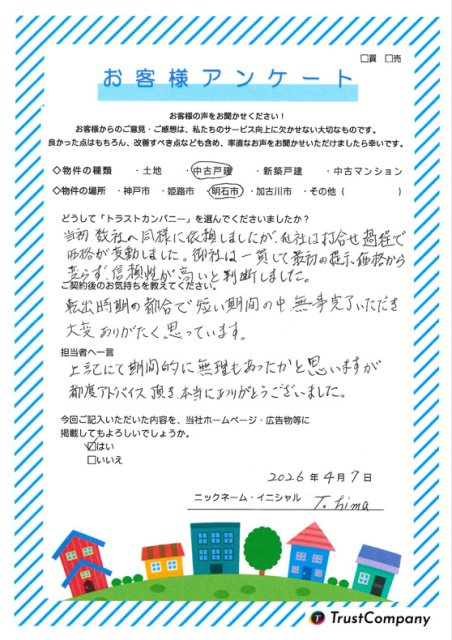 □買 □売
お客様アンケート
お客様の声をお聞かせください！
お客様からのご意見・ご感想は、私たちのサービス向上に欠かせない大切なものです。
良かった点はもちろん、改善すべき点なども含め、率直なお声をお聞かせいただけましたら幸いです。
◇物件の種類 ・土地 ・中古戸建 ・新築戸建 ・中古マンション
◇物件の場所 ・神戸市 ・姫路市 ・明石市 ・加古川市 ・その他（ ）
どうして「トラストカンパニー」を選んでくださいましたか？
当初 数社へ同様に依頼しましたが、他社は打合せ過程で
価格が変動しました。御社は一貫して最初の提示価格から
変らず、信頼性が高いと判断しました。
ご契約後のお気持ちを教えてください。
転出時期の都合で短い期間の中、無事完了いただき
大変ありがたく思っています。
担当者へ一言
上記にて期間的に無理もあったかと思いますが
都度アドバイス頂き、本当にありがとうございました。
今回ご記入いただいた内容を、当社ホームページ・広告物等に
掲載してもよろしいでしょうか。
☑はい
□いいえ
2026 年 4 月 7 日
ニックネーム・イニシャル T.
T TrustCompany